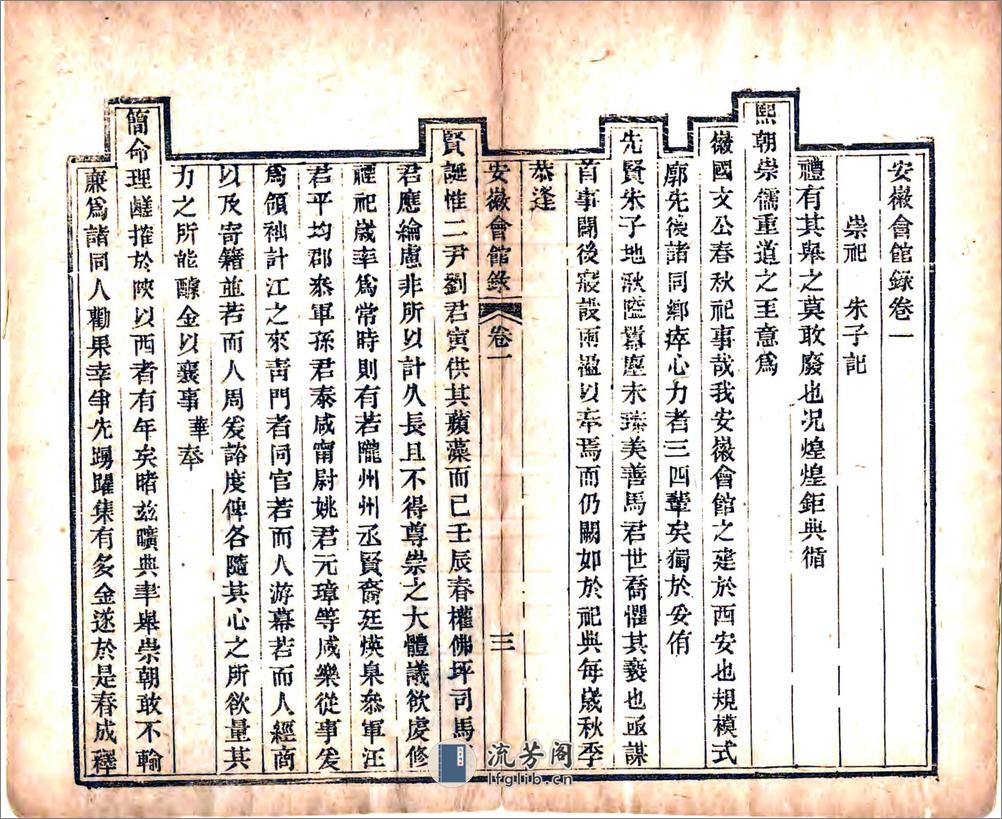 安徽會館錄卷一
崇祀 朱子記
禮有其舉之莫敢廢也况煌煌鉅典循
熙朝崇儒重道之至意爲
徽國文公春秋祀事哉我安徽會館之建於西安也規模式
廓先後諸同鄉瘁心力者三四輩矣獨於妥侑
先賢朱子地湫隘囂塵未臻美善馬君世喬懼其褻也亟謀
首事闢後寢設兩楹以奉焉而仍闕如於祀典每歲秋季
恭逢
安徽會館錄 卷一 三
賢誕惟二尹劉君寅供其蘋藻而已壬辰春權佛坪司馬
君應綸慮非所以計久長且不得尊崇之大體議欲虔修
禋祀歲率爲常時則有若隴州州丞賢裔廷煐臬叅軍汪
君平均郡叅軍孫君泰咸甯尉姚君元璋等咸樂從事爰
爲領袖計江之來靑門者同官若而人游幕若而人經商
以及寄籍並若而人周爰諮度俾各隨其心之所欲量其
力之所能醵金以襄事華奉
簡命理鹺搉於陝以西者有年矣睹兹曠典聿舉崇朝敢不輸
廉爲諸同人勸果幸爭先踴躍集有多金遂於是春成釋
流芳阁
lfglib.cn